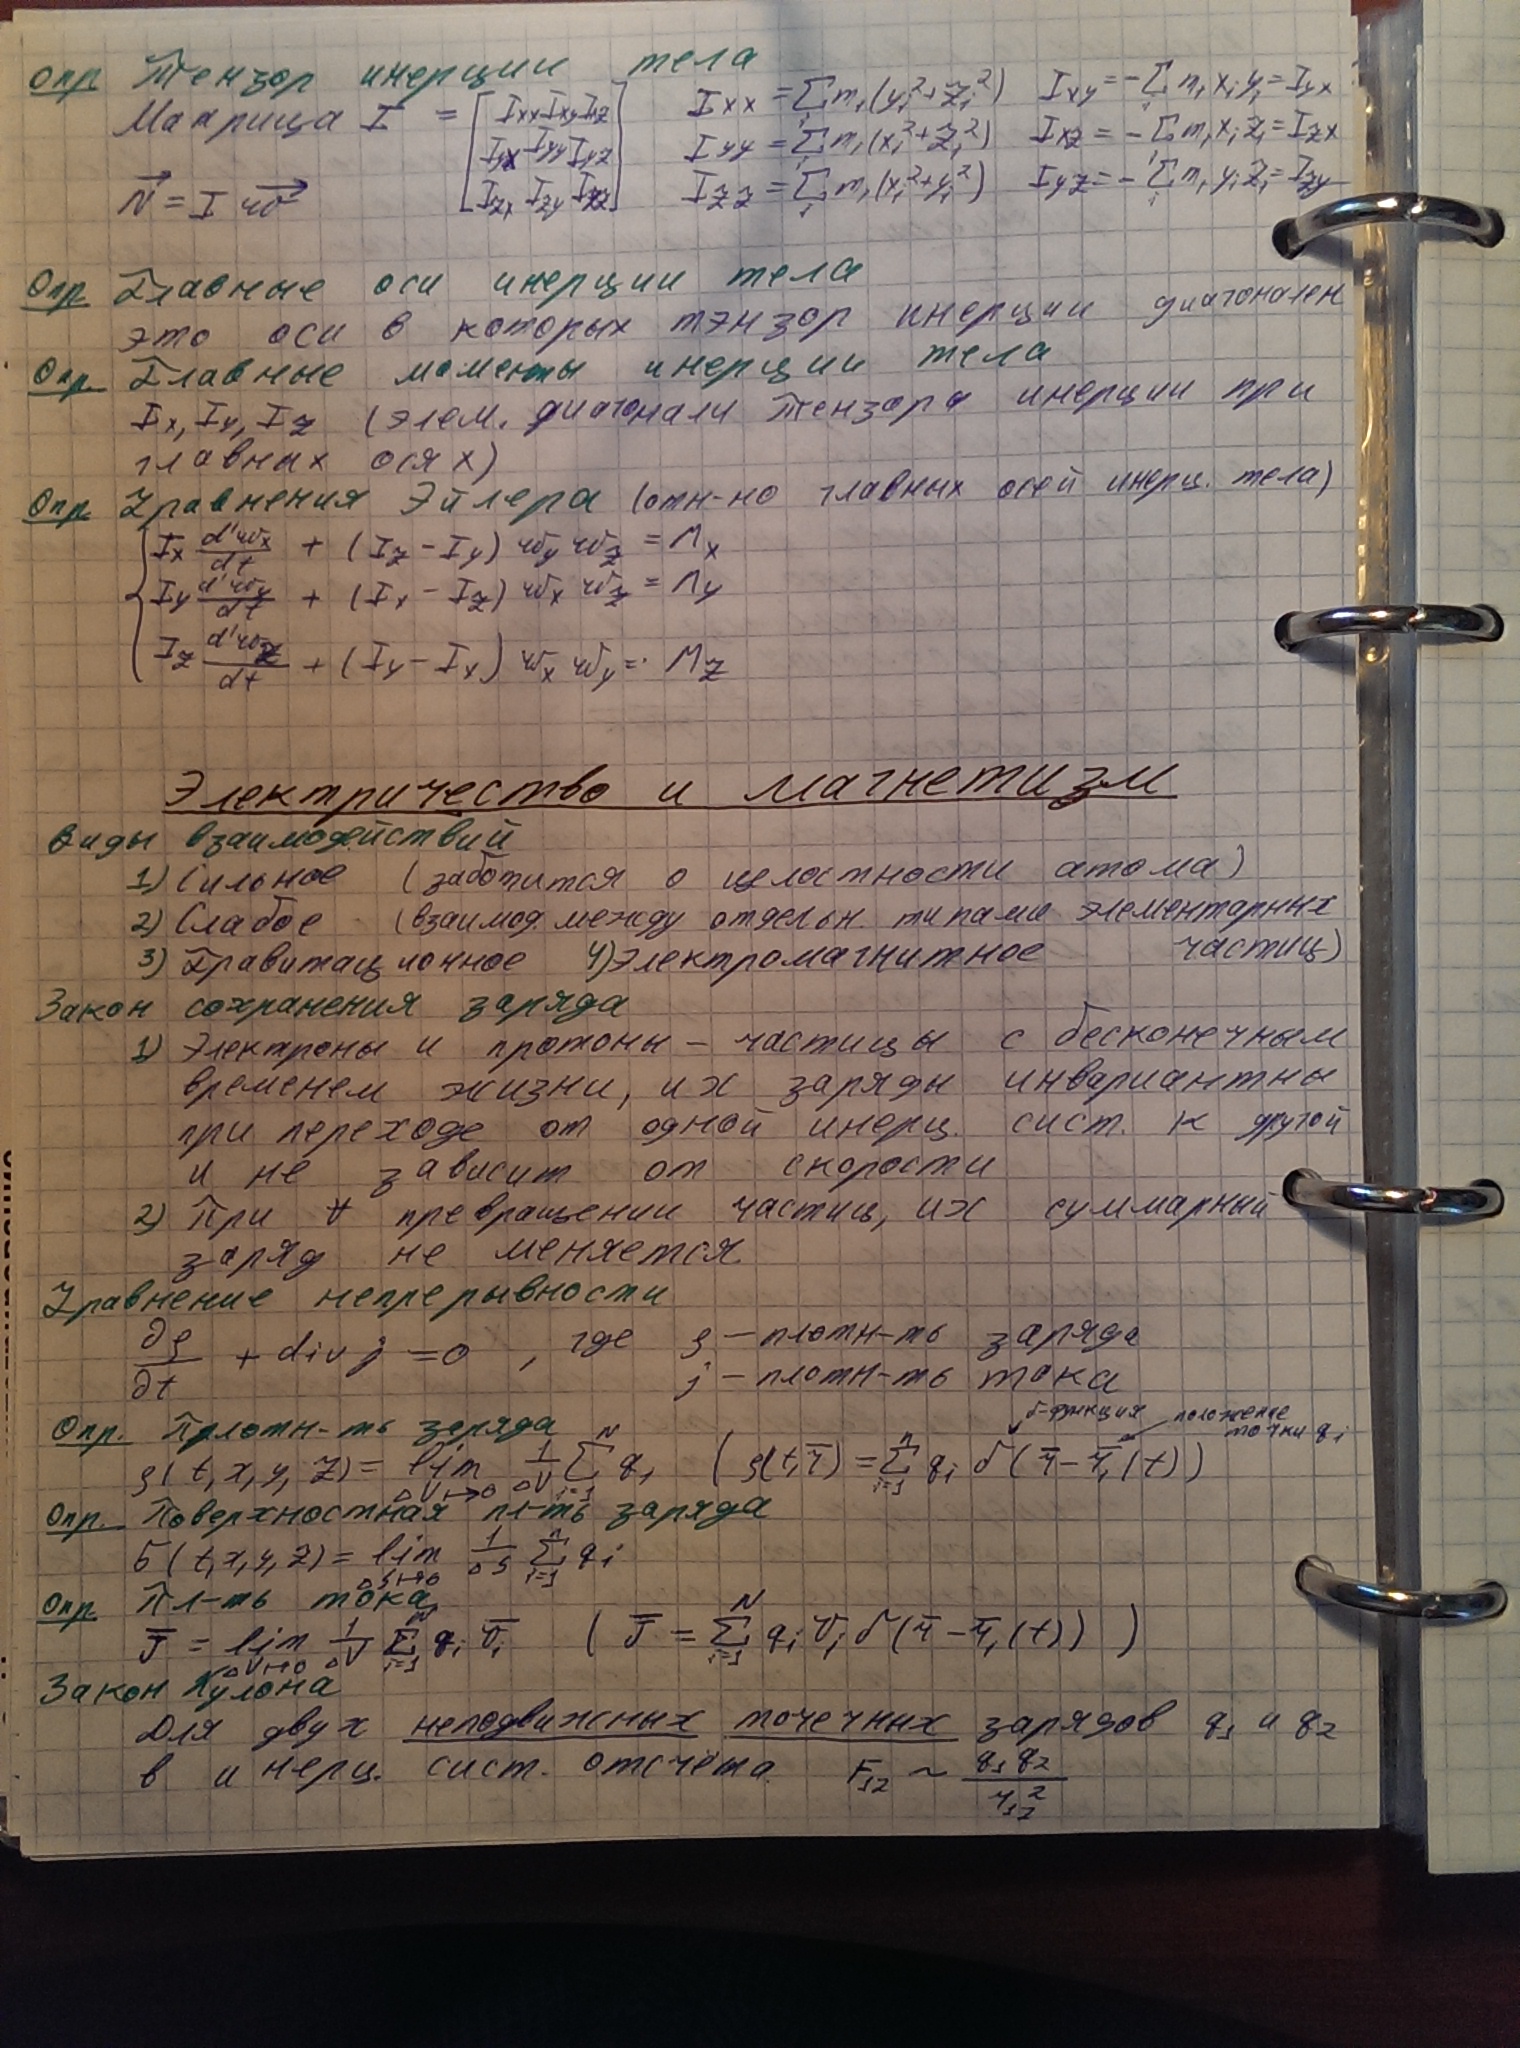 Опр Тензор инерции тела
Матрица I = [Ixx Ixy Ixz
Iyx Iyy Iyz
Izx Izy Izz]
Ixx = Σ mᵢ(yᵢ²+zᵢ²) Ixy = -Σ mᵢxᵢyᵢ = Iyx
Iyy = Σ mᵢ(xᵢ²+zᵢ²) Ixz = -Σ mᵢxᵢzᵢ = Izx
Izz = Σ mᵢ(xᵢ²+yᵢ²) Iyz = -Σ mᵢyᵢzᵢ = Izy
N⃗ = I w⃗
Опр Главные оси инерции тела
это оси в которых тэнзор инерции диагонален
Опр. Главные моменты инерции тела
Ix, Iy, Iz (элем. диагонали тензора инерции при
главных осях)
Опр Уравнения Эйлера (отн-но главных осей инерц. тела)
Ix d'wx/dt + (Iz - Iy) wy wz = Mx
Iy d'wy/dt + (Ix - Iz) wx wz = My
Iz d'wz/dt + (Iy - Ix) wx wy = Mz
Электричество и магнетизм
Виды взаимодействий
1) Сильное (заботится о целостности атома)
2) Слабое (взаимод. между отдельн. типами элементарных
частиц)
3) Гравитационное 4) Электромагнитное
Закон сохранения заряда
1) Электроны и протоны - частицы с бесконечным
временем жизни, их заряды инвариантны
при переходе от одной инерц. сист. к другой
и не зависит от скорости
2) При ∀ превращении частиц, их суммарный
заряд не меняется
Уравнение непрерывности
∂ρ/∂t + div j = 0, где ρ - плотн-ть заряда
j - плотн-ть тока
δ-функция положение точки qᵢ
Опр. Плотн-ть заряда
ρ(t, x, y, z) = lim ΔV↦0 1/ΔV Σ i=1 N qᵢ (ρ(t, r̄) = Σ i=1 n qᵢ δ(r̄ - r̄ᵢ(t)))
Опр. Поверхностная пл-ть заряда
б(t, x, y, z) = lim ΔS↦0 1/ΔS Σ i=1 n qᵢ
Опр Пл-ть тока
J̄ = lim ΔV↦0 1/ΔV Σ i=1 N qᵢ v̄ᵢ (J̄ = Σ i=1 N qᵢ v̄ᵢ δ(r̄ - r̄ᵢ(t)))
Закон Кулона
Для двух неподвижных точечных зарядов q₁ и q₂
в инерц. сист. отсчёта F₁₂ ~ q₁q₂/r₁₂²